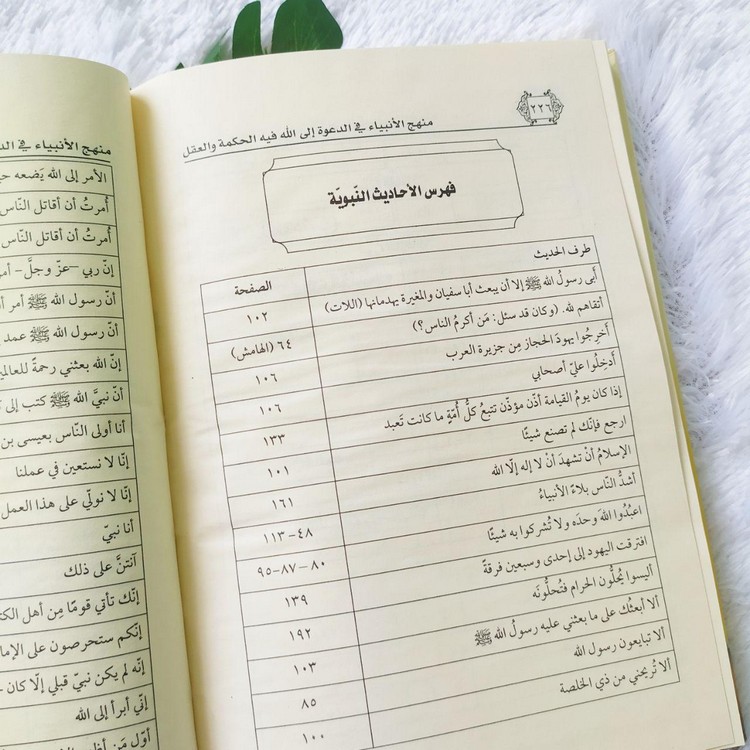 ٢٢٦
منهج الأنبياء في الدعوة إلى الله فيه الحكمة والعقل
فهرس الأحاديث النّبويّة
طرف الحديث الصفحة
أبى رسولُ الله ﷺ إلا أن يبعث أبا سفيان والمغيرة يهدمانها (اللات) ١٠٢
أتقاهم لله. (وكان قد سئل: مَن أكرمُ الناس؟) ٦٤ (الهامش)
أَخرِجُوا يهودَ الحجاز مِن جزيرة العرب ١٠٦
أَدخِلُوا عليّ أصحابي ١٠٦
إذا كان يومُ القيامة أذّن مؤذّن تتبعُ كلُّ أُمّةٍ ما كانت تَعبد ١٣٣
ارجع فإنّك لم تصنع شيئًا ١٠١
الإسلامُ أنْ تشهدَ أنْ لا إله إلّا الله ١٦١
أشدُّ النّاس بلاءً الأنبياءُ ٤٨-١١٣
اعبُدُوا اللهَ وحدَه ولا تُشركوا به شيئًا ٨٠-٨٧-٩٥
افترقت اليهود إلى إحدى وسبعين فرقةً ١٣٩
أليسوا يُحلُّون الحرام فتُحلُّونَه ١٩٢
ألا أبعثُك على ما بعثني عليه رسولُ الله ﷺ ١٠٣
ألا تبايعون رسول الله ٨٥
ألا تُريحُني من ذي الخلصة ١٠٠
منهج الأنبياء في
الأمر إلى الله يَضعه
أُمرتُ أن أقاتل النّاس
أُمرتُ أن أقاتل النّاس
إنّ ربي -عزّ وجلَّ-
أنّ رسول الله ﷺ أمر
أنّ رسول الله ﷺ عمد
إنّ الله بعثني رحمةً
أنّ نبيَّ الله ﷺ كتب إلى
أنا أولى النّاس بعيسى بن
إنّا لا نستعين في عملنا
إنّا لا نولّي على هذا العمل
أنا نبيّ
آنتنَّ على ذلك
إنّك تأتي قومًا مِن أهل
إنّكم ستحرصون على
إنّه لم يكن نبيّ قبلي إلّا كان
إنّي أبرأ إلى الله
أوّل مَن